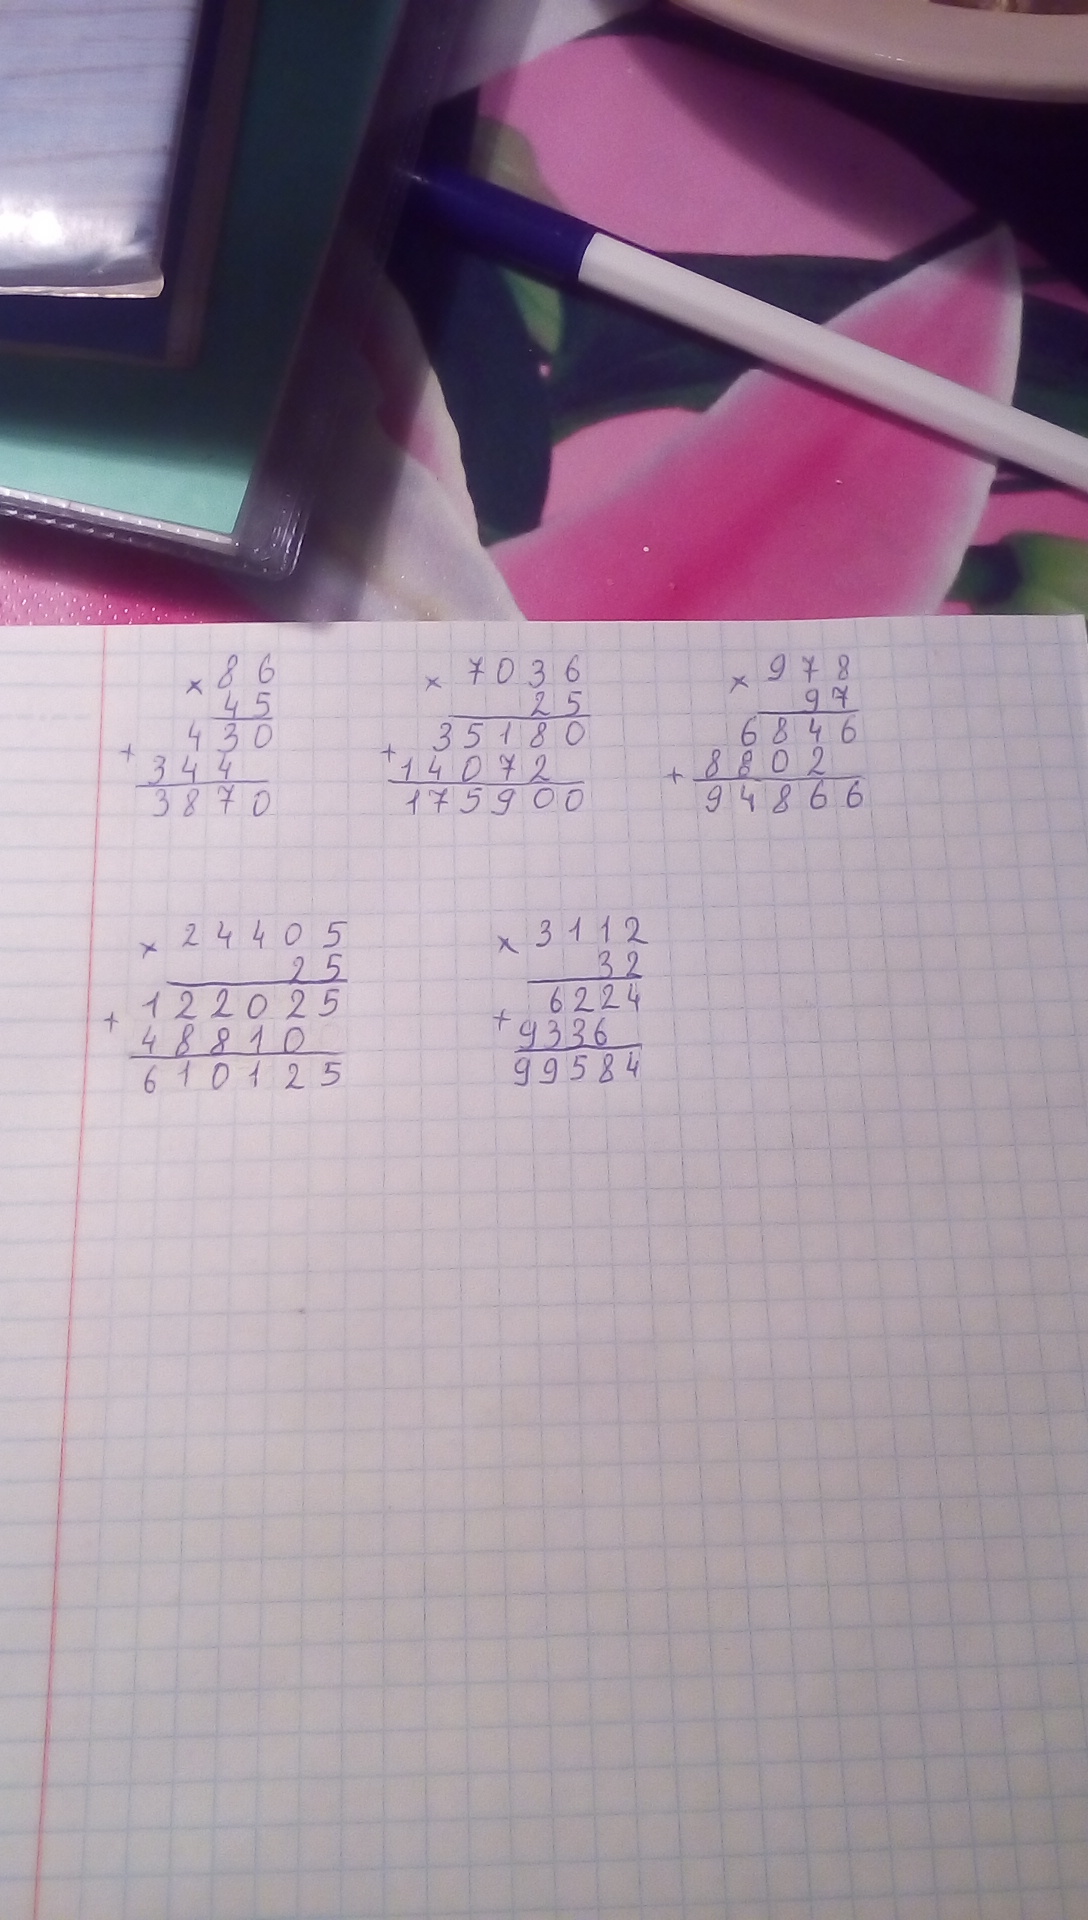 × 86
45
430
+
344
3870
× 7036
25
35180
+
14072
175900
× 978
97
6846
+ 8802
94866
× 24405
25
122025
+
48810
610125
× 3112
32
6224
+
9336
99584